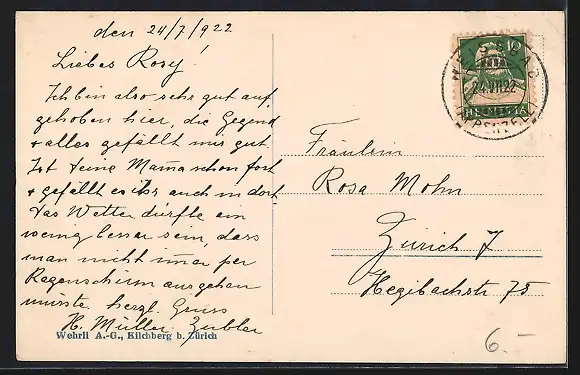 den 24/7/922
Liebes Rosy!
Ich bin also sehr gut auf
gehoben hier, die Gegend
+ alles gefällt mir gut.
Ist deine Mama schon fort
+ gefällt es ihr auch in dort
Das Wetter dürfte ein
wenig besser sein, dass
man nicht im̅er per
Regenschirm ausgehen
müsste. herzl. Gruss
H. Müller-Zubler
Wehrli A.-G., Kilchberg b. Zürich
10
HELVETIA
WEISSBAD
24.VII.22
(APPENZELL)
Fräulein
Rosa Mohn
Zürich 7
Hegibachstr 75
6.-